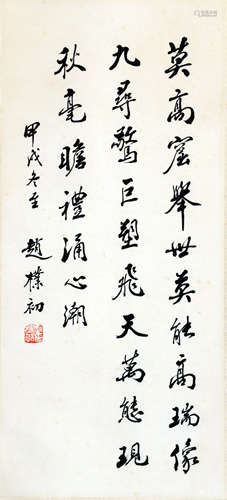 莫高窟舉世莫能高瑞像
九尋驚巨塑飛天萬態現
秋毫瞻禮湧心潮
甲戌冬至
趙樸初